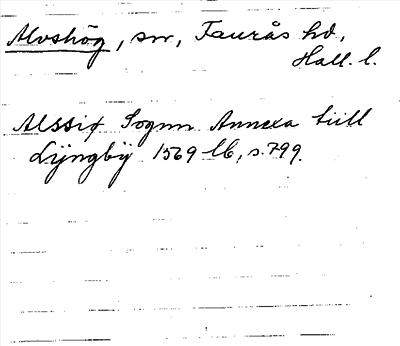 Alvshög, sn, Faurås hd,
Hall. l.
Alssiø Sognn Annexa tiill
Lÿngbÿ 1569 lb, s. 799.